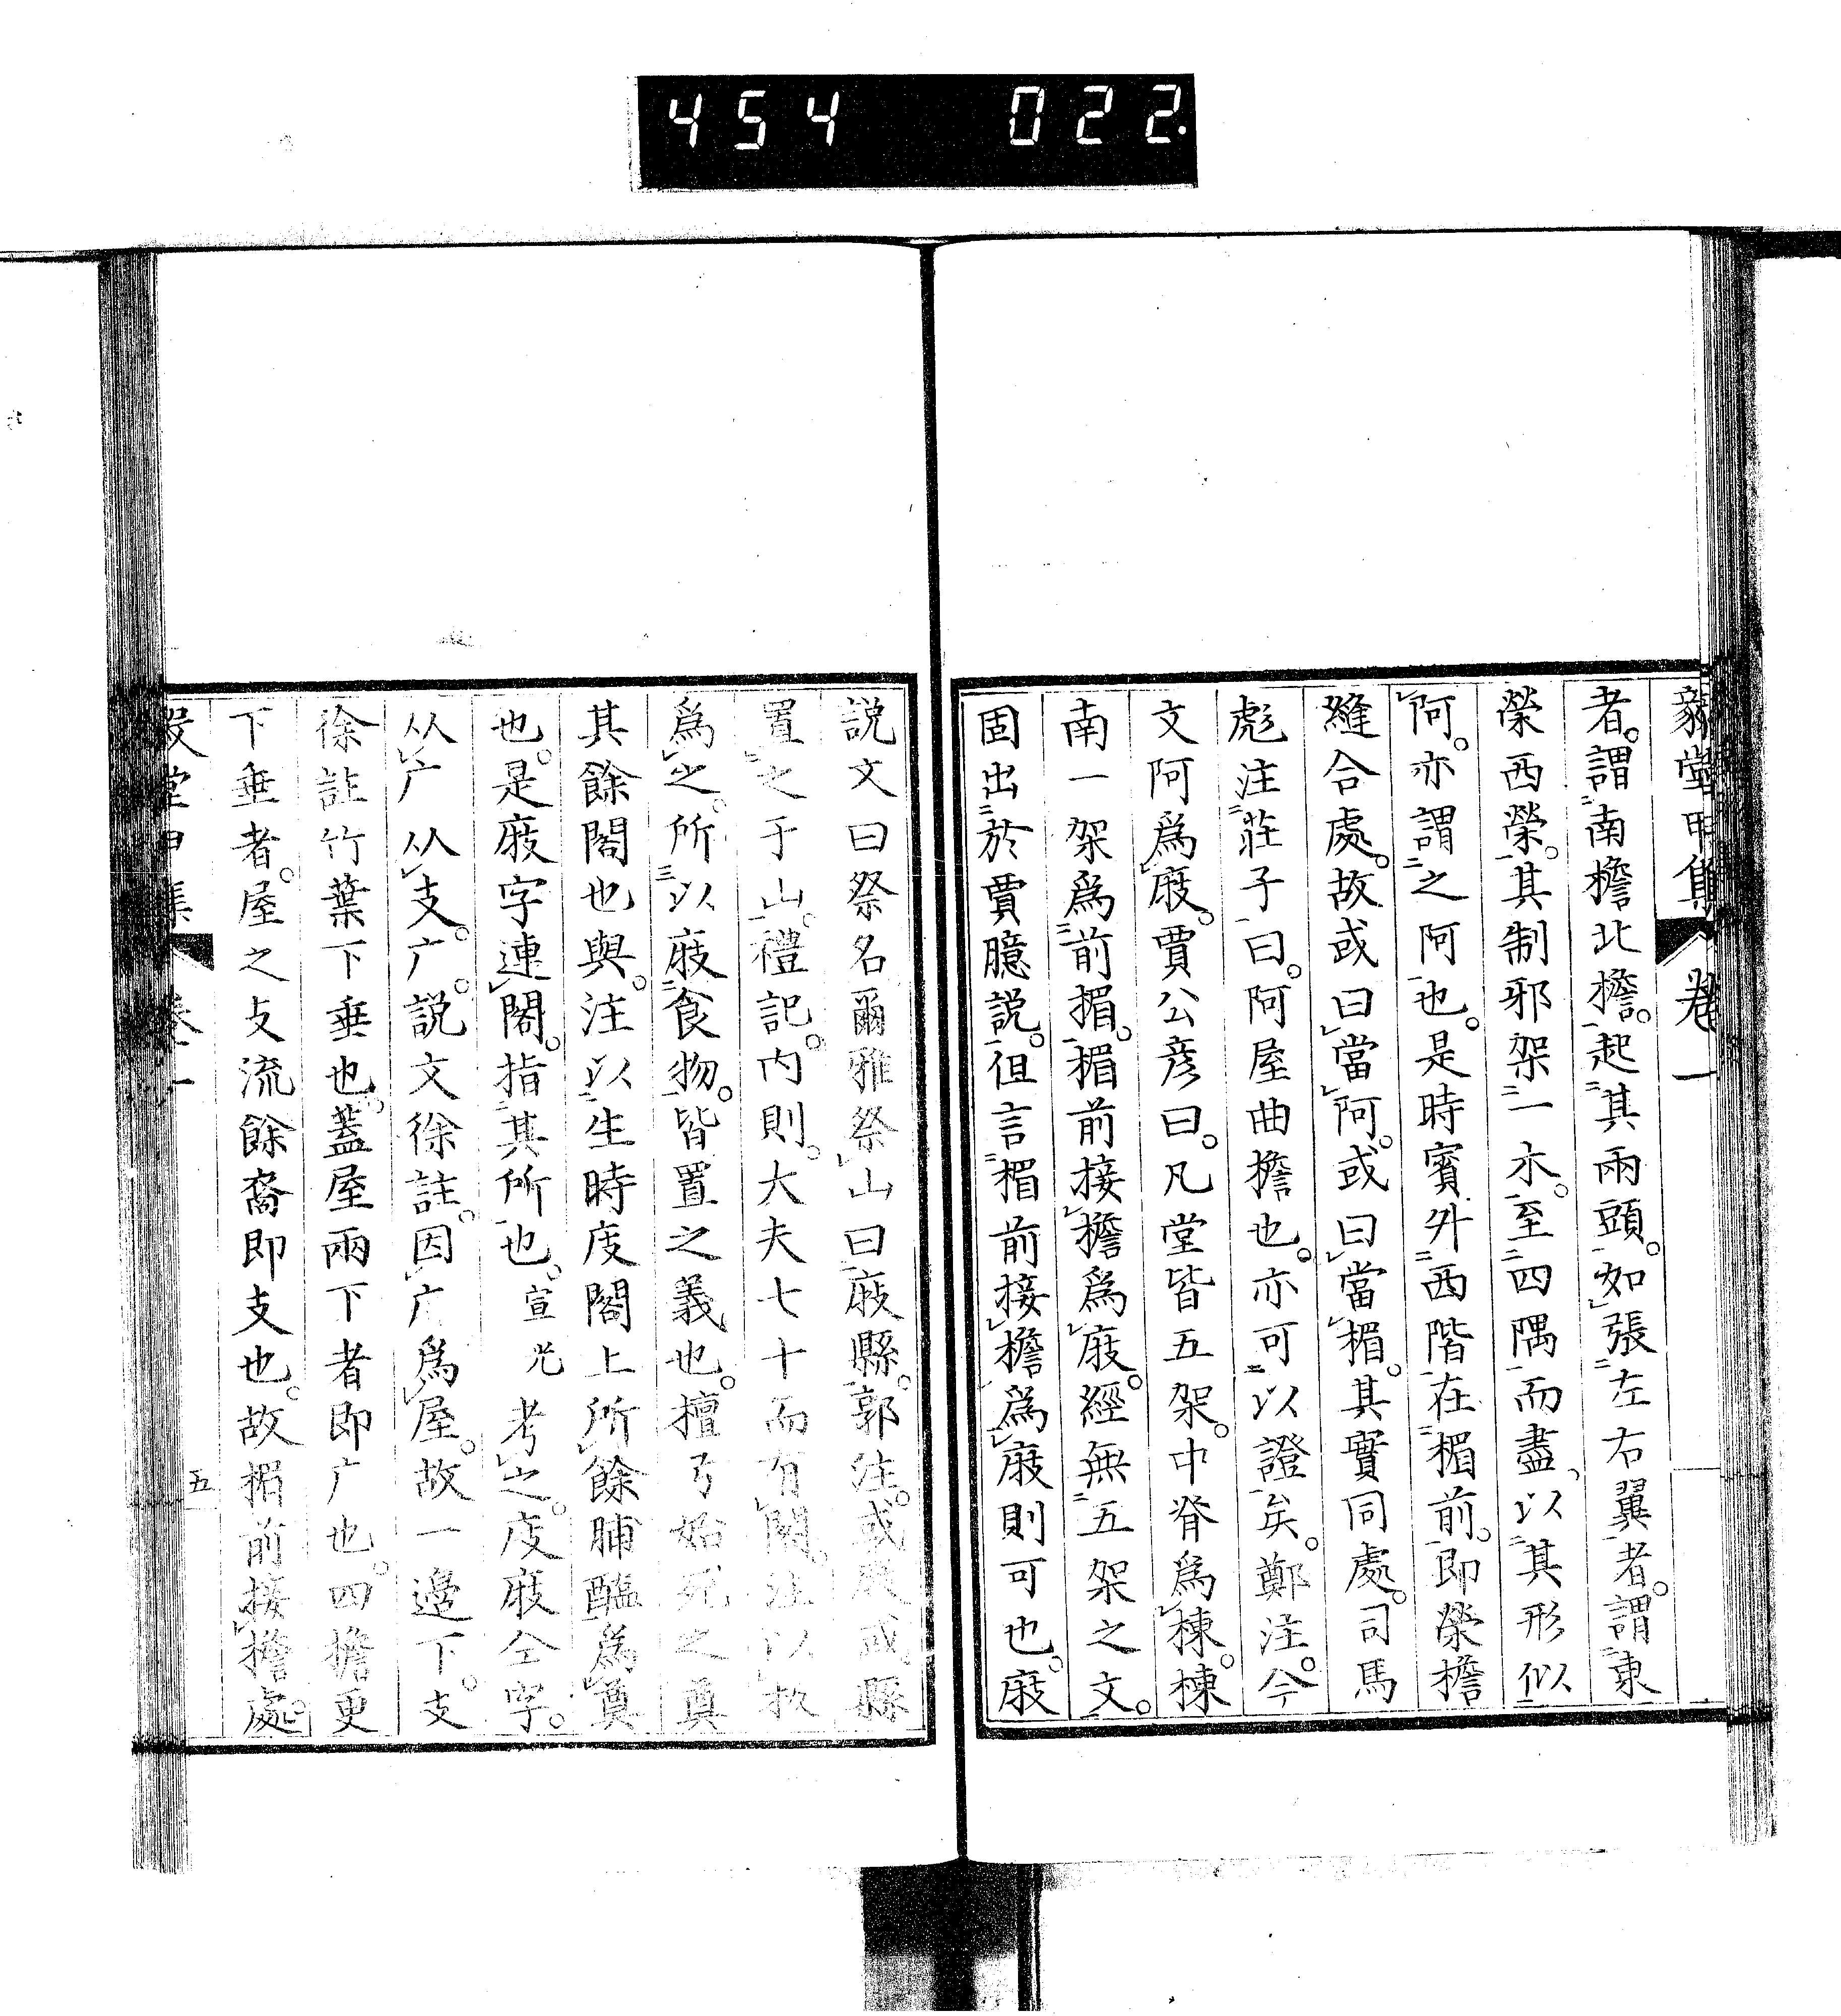 454 022.
毅堂甲集 卷一
者。謂南檐北檐。起其兩頭。如張左右翼者。謂東
榮西榮。其制邪架一木。至四隅而盡。以其形似
阿。亦謂之阿也。是時賓外西階。在楣前。即榮檐
縫合處。故或曰當阿。或曰當楣。其實同處。司馬
彪注莊子曰。阿屋曲檐也。亦可以證矣。鄭注。今
文阿爲庪。賈公彦曰。凡堂皆五架。中脊爲棟。棟
南一架爲前楣。楣前接檐爲庪。經無五架之文。
固出於賈臆説。但言楣前接檐爲庪則可也。庪
説文曰祭名爾雅祭山曰庪縣。郭注。或庪或縣
置之于山。禮記。内則。大夫七十而有閣。注以板
爲之。所以庪食物。皆置之義也。檀弓始死之奠
其餘閣也與。注以生時庋閣上所餘脯醢爲奠
也。是庪字連閣。指其所也。宣光考之。庋庪仝字。
从广从支。广。説文徐註。因广爲屋。故一邉下。支
徐註竹葉下垂也。蓋屋兩下者即广也。四檐更
下垂者。屋之攴流餘裔即支也。故楣前接檐處。
毅堂甲集 卷一
五